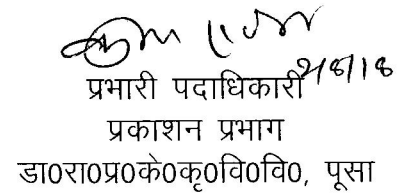 2/8/18
प्रभारी पदाधिकारी
प्रकाशन प्रभाग
डा0रा0प्र0के0कृ0वि0वि0, पूसा